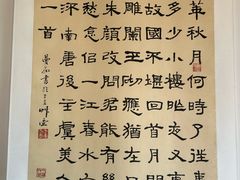 華秋月何時了往
多少小樓昨夜又
故國不堪回首月
雕闌玉砌應猶在
朱顏改問君能有
愁恰似一江春水
流南唐後主虞美
一首